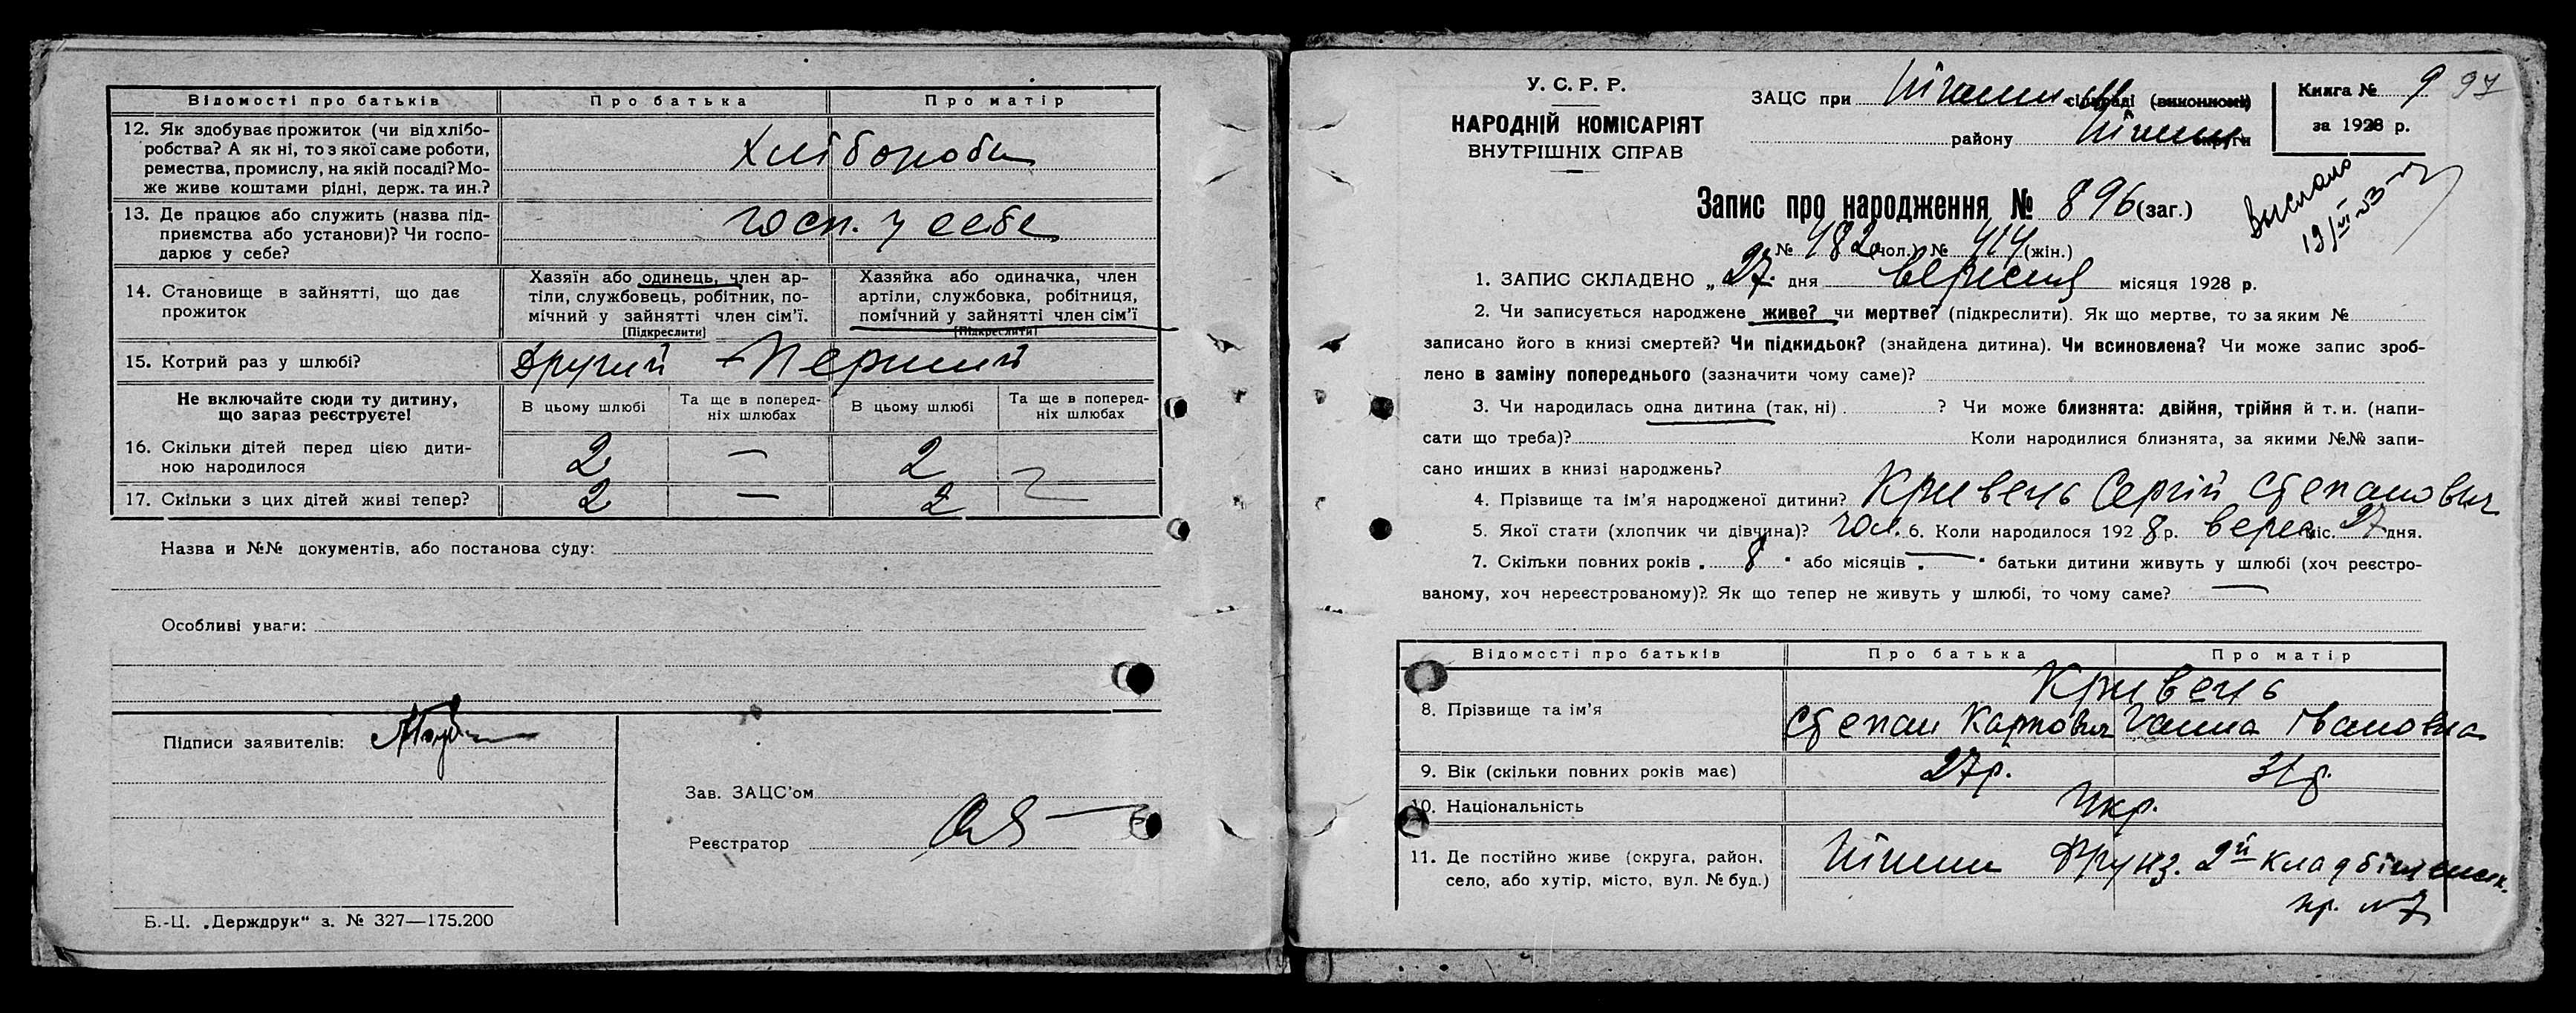 Відомості про батьків Про батька Про матір
12. Як здобуває прожиток (чи від хлібо-
робства? А як ні, то з якої саме роботи,
ремества, промислу, на якій посаді? Мо-
же живе коштами рідні, держ. та ин.?
Хлібороби
13. Де працює або служить (назва під-
приємства або установи)? Чи госпо-
дарює у себе?
госп. у себе
14. Становище в зайнятті, що дає
прожиток
Хазяїн або одинець, член ар-
тіли, службовець, робітник, по-
мічний у зайнятті член сім'ї.
[Підкреслити]
Хазяйка або одиначка, член
артіли, службовка, робітниця,
помічний у зайнятті член сім'ї
[Підкреслити]
15. Котрий раз у шлюбі? Другий - Перший
Не включайте сюди ту дитину,
що зараз реєструєте!
В цьому шлюбі
Та ще в поперед-
ніх шлюбах
В цьому шлюбі
Та ще в поперед-
ніх шлюбах
16. Скільки дітей перед цією дити-
ною народилося
2 — 2
17. Скільки з цих дітей живі тепер? 2 — 2 —
Назва и №№ документів, або постанова суду:
Особливі уваги:
Підписи заявителів:
Зав. ЗАЦС'ом
Реєстратор
Б.-Ц. „Держдрук“ з. № 327—175.200
У. С. Р. Р.
НАРОДНІЙ КОМІСАРІЯТ
ВНУТРІШНІХ СПРАВ
ЗАЦС при сільраді (виконкомі)
району округи
Книга № 9 97
за 1928 р.
Выслано
Запис про народження № 896 (заг.)
№ 482 (чол.) № 414 (жін.)
1. ЗАПИС СКЛАДЕНО „ 27 дня вересня місяця 1928 р.
2. Чи записується народжене живе? чи мертве? (підкреслити). Як що мертве, то за яким №
записано його в книзі смертей? Чи підкидьок? (знайдена дитина). Чи всиновлена? Чи може запис зроб-
лено в заміну попереднього (зазначити чому саме)?
3. Чи народилась одна дитина (так, ні) ? Чи може близнята: двійня, трійня й т. и. (напи-
сати що треба)? Коли народилися близнята, за якими №№ запи-
сано инших в книзі народжень?
4. Прізвище та ім'я народженої дитини? Кривець Сергій Степанович
5. Якої стати (хлопчик чи дівчина)? чол. 6. Коли народилося 1928 р. верес міс. 27 дня.
7. Скільки повних років „ 8 “ або місяців „ — “ батьки дитини живуть у шлюбі (хоч реєстро-
ваному, хоч нереєстрованому)? Як що тепер не живуть у шлюбі, то чому саме? —
Відомості про батьків Про батька Про матір
Кривець
8. Прізвище та ім'я
Степан Карпович Ганна Івановна
9. Вік (скільки повних років має) 27р. 31р.
10. Національність Укр.
11. Де постійно живе (округа, район,
село, або хутір, місто, вул. № буд.)
Фрунз. 2й кладбіщенск.
пр. №7